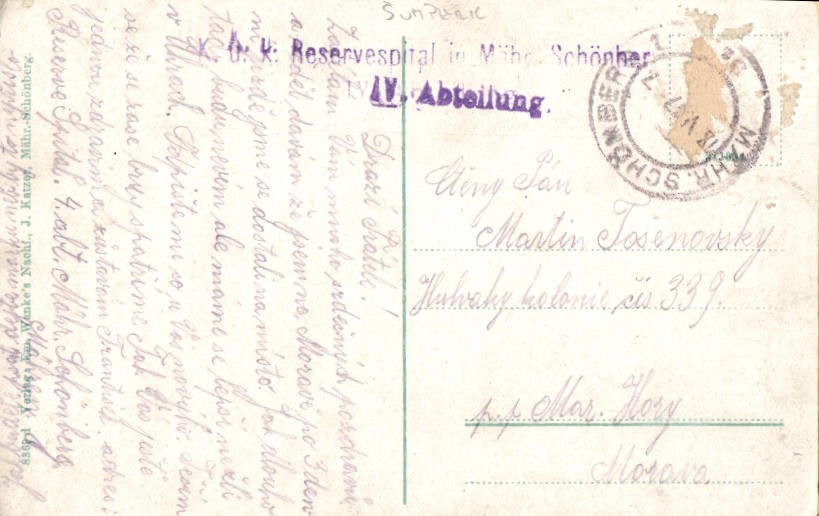 ŠUMPERK
K. u. k. Reservespital in Mähr. Schönberg
IV. Abteilung.
MÄHR. SCHÖNBERG
Ctěný Pán
Martin Tošenovský
Hulvaky kolonie čís 339.
p. p Mar. Hory
Morava.
Drazí Přátelé!
Zasílám Vám mnoho srdečných pozdravů
a věděti dávám že jsem na Moravě po 3 den
jízdě jsme se dostali na místo. Jak dlouho
tady budu nevím ale máme se lépe než li
v Uhrách. Odpište mi co u Vás nového. Těším
se že se zase brzy spatříme Jak Vás jistě
jednou zdravím a zůstávám František. adresa:
Reserve Spital. 4. abt. Mähr. Schönberg
Verlag: Em. Wanke's Nachf., J. Katzer, Mähr.-Schönberg.